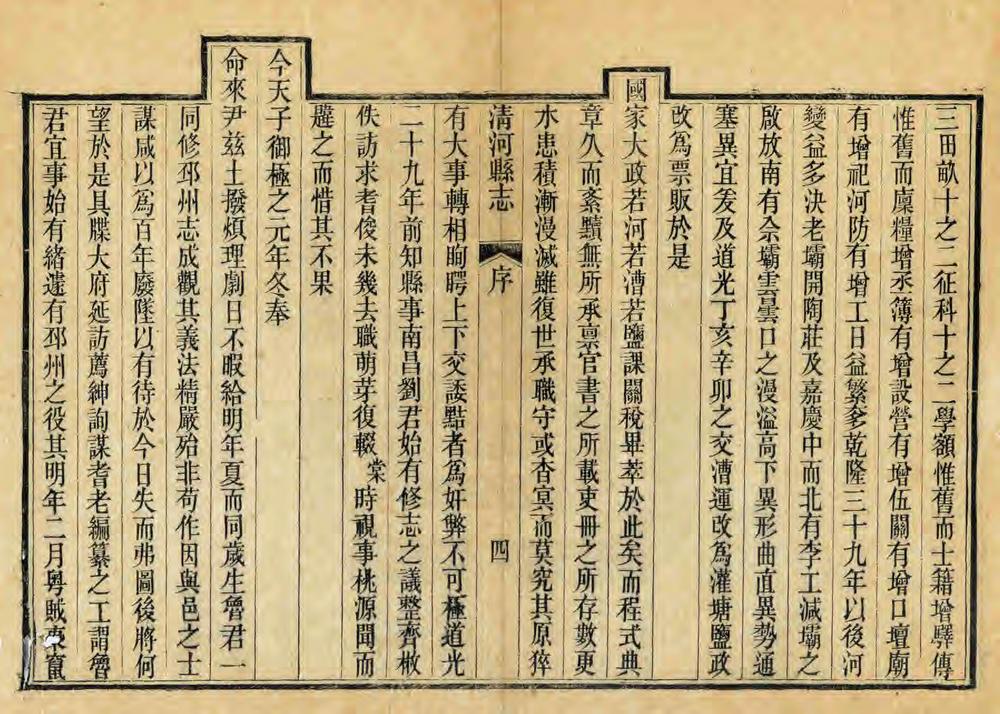 三田畝十之二征科十之二學額惟舊而士籍增驛傳
惟舊而廩糧增丞簿有增設營有增伍關有增口壇廟
有增祀河防有增工日益繁多乾隆三十九年以後河
變益多決老壩開陶莊及嘉慶中而北有李工減壩之
啟放南有佘壩雲曇口之漫溢高下異形曲直異勢通
塞異宜爰及道光丁亥辛卯之交漕運改為灌塘鹽政
改為票販於是
國家大政若河若漕若鹽課關稅畢萃於此矣而程式典
章久而紊黷無所承禀官書之所載吏冊之所存數更
水患積漸漫滅雖復世承職守或杳冥而莫究其原猝
清河縣志 序 四
有大事轉相眴愕上下交諉黠者為奸弊不可極道光
二十九年前知縣事南昌劉君始有修志之議整齊散
佚訪求耆俊未幾去職萌芽復輟棠時視事桃源聞而
韙之而惜其不果
今天子御極之元年冬奉
命來尹茲土撥煩理劇日不暇給明年夏而同歲生魯君一
同修邳州志成觀其義法精嚴殆非苟作因與邑之士
謀咸以為百年廢墜以有待於今日失而弗圖後將何
望於是具牒大府延訪薦紳詢謀耆老編纂之工謂魯
君宜事始有緒遽有邳州之役其明年二月粵賊東竄